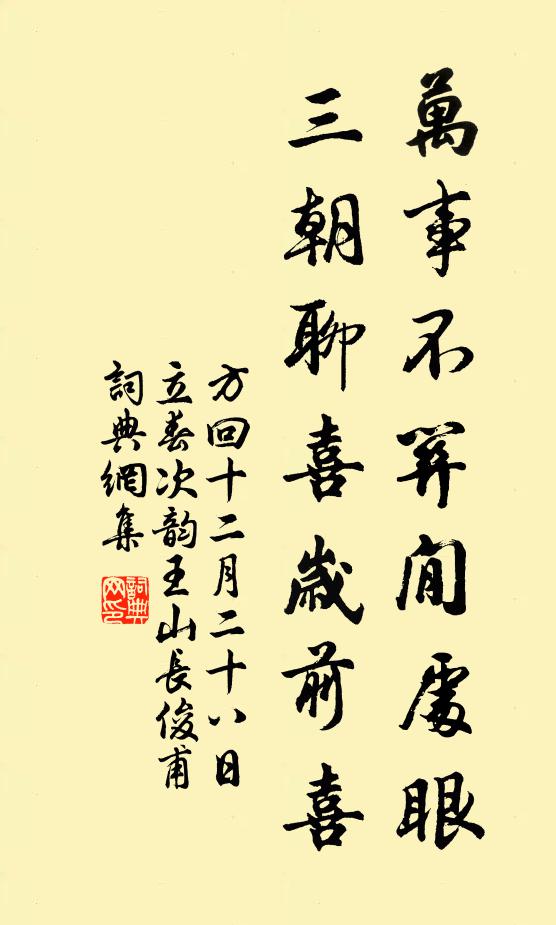 萬事不閒處眼
三朝聊喜歲前喜
方回十二月二十八日
立春次韵王山長俊甫
詞典網集
詞典
网印